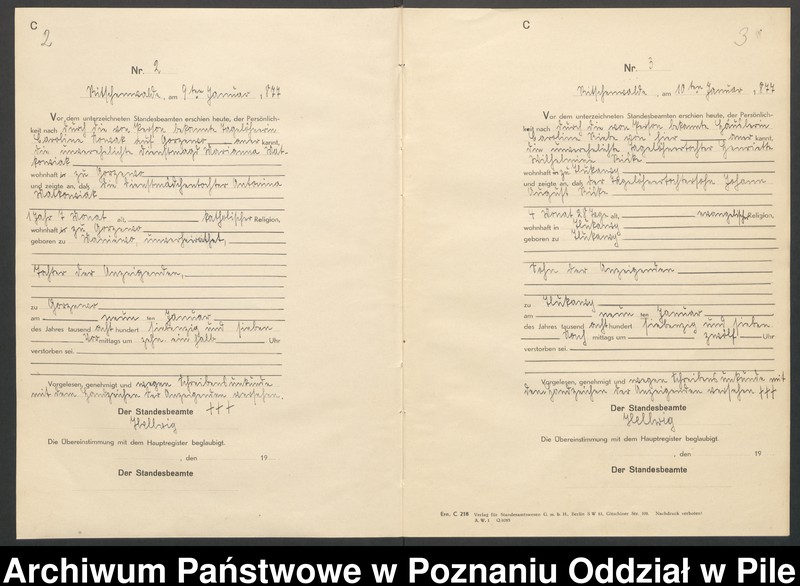 C
2
Nr. 2
Ritschenwalde, am 9ten Januar 1877
Vor dem unterzeichneten Standesbeamten erschien heute, der Persönlich-
keit nach durch die von Person bekannte Tagelöhnerin
Caroline Nowak aus Gorzewo aner kannt,
die unverehelichte Dienstmagd Marianna Mat-
kowiak
wohnhaft zu Gorzewo
und zeigte an, daß die Dienstmädchentochter Antonina
Matkowiak
1 Jahr 7 Monat alt, katholischer Religion,
wohnhaft zu Gorzewo
geboren zu unverheirathet,
Tochter der Anzeigenden,
zu Gorzewo
am neun ten Januar
des Jahres tausend acht hundert siebenzig und sieben
Vor mittags um zehn ein halb Uhr
verstorben sei.
Vorgelesen, genehmigt und wegen Schreibensunkunde
mit dem Handzeichen der Anzeigenden versehen.
Der Standesbeamte +++
Hellwig
Die Übereinstimmung mit dem Hauptregister beglaubigt.
, den 19
Der Standesbeamte
C
3
Nr. 3
Ritschenwalde, am 10ten Januar 1877
Vor dem unterzeichneten Standesbeamten erschien heute, der Persönlich-
keit nach durch die von Person bekannte Häuslerin
Caroline von hier aner kannt,
die unverehelichte Tagelöhnertochter Henriette
Wilhelmine
wohnhaft zu
und zeigte an, daß der Tagelöhnertochtersohn Johann
August
4 Monat 27 Tage alt, evangelisch Religion,
wohnhaft in
geboren zu
Sohn der Anzeigenden
zu
am neun ten Januar
des Jahres tausend acht hundert siebenzig und sieben
Nach mittags um zwölf Uhr
verstorben sei.
Vorgelesen, genehmigt und wegen Schreibensunkunde mit
dem Handzeichen der Anzeigenden versehen +++
Der Standesbeamte
Hellwig
Die Übereinstimmung mit dem Hauptregister beglaubigt.
, den 19
Der Standesbeamte
Erm. C 218 Verlag für Standesamtswesen G. m. b. H., Berlin SW 61, Gitschiner Str. 109. Nachdruck verboten!
Archiwum Państwowe w Poznaniu Oddział w Pile